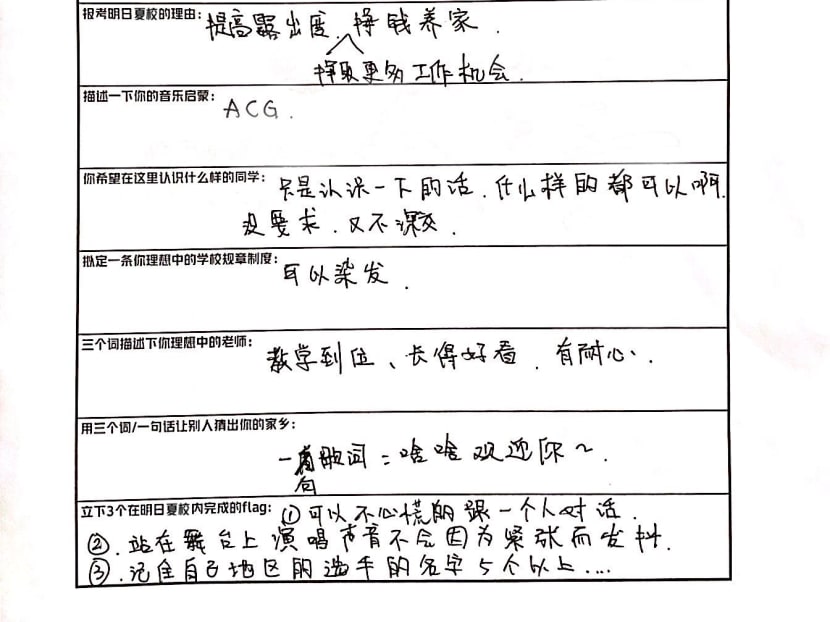 报考明日夏校的理由：提高露出度、挣钱养家．
争取更多工作机会．
描述一下你的音乐启蒙：ACG．
你希望在这里认识什么样的同学：只是认识一下的话．什么样的都可以啊．
没要求．又不深交．
拟定一条你理想中的学校规章制度：可以染发．
三个词描述下你理想中的老师：教学到位、长得好看．有耐心．
用三个词/一句话让别人猜出你的家乡：
一句歌词：啥啥欢迎你～．
立下3个在明日夏校内完成的flag：①可以不心慌的跟一个人对话．
②．站在舞台上演唱声音不会因为紧张而发抖．
③．记住自己地区的选手的名字5个以上....